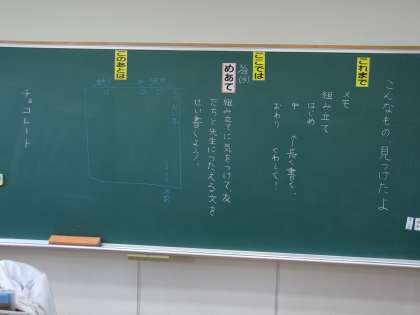 これまで
こんなもの 見つけたよ
メモ
組み立て
はじめ
中 ←長く書く。
くわしく!
おわり
ここでは
めあて
組み立てに気をつけて、友
だちと先生につたえる文を
せい書しよう。
このあとは
チョコレート